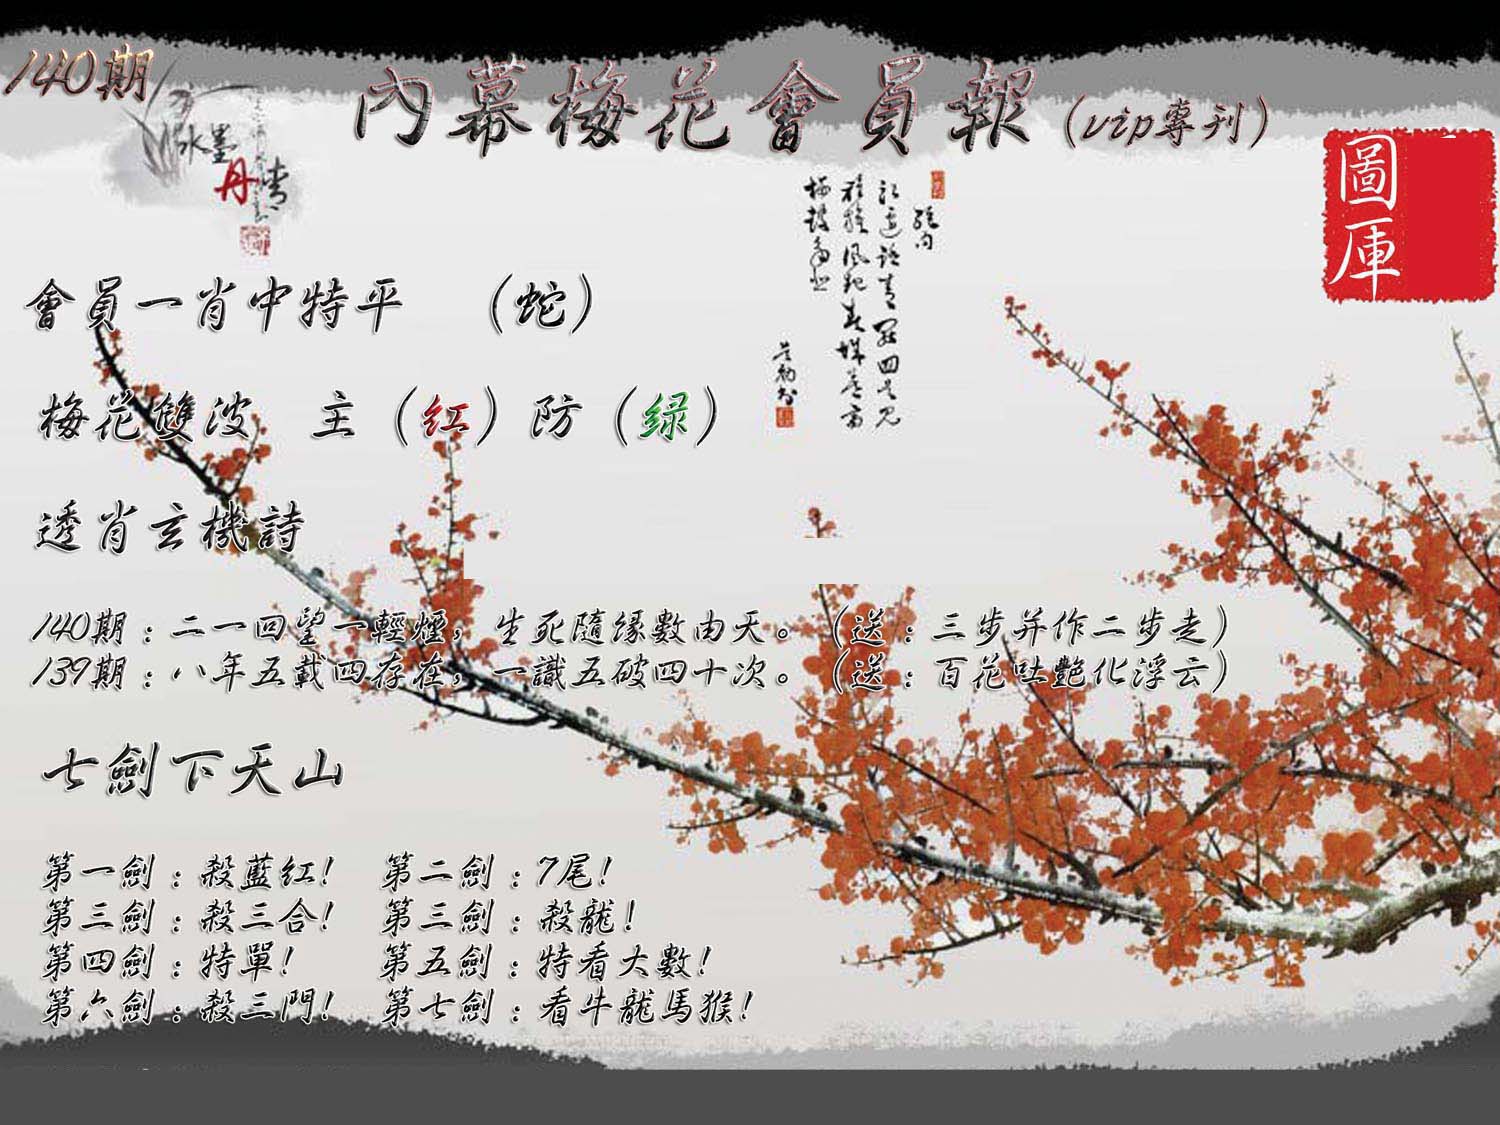 140期
內幕梅花會員報(vip專刊)
水墨
丹青
圖庫
會員一肖中特平 （蛇）
梅花雙波 主（红）防（绿）
透肖玄機詩
140期：二一回望一輕煙，生死隨緣數由天。（送：三步并作二步走）
139期：八年五載四存在，一識五破四十次。（送：百花吐艷化浮云）
七劍下天山
第一劍：殺藍红! 第二劍：7尾!
第三劍：殺三合! 第三劍：殺龍!
第四劍：特單! 第五劍：特看大數!
第六劍：殺三門! 第七劍：看牛龍馬猴!